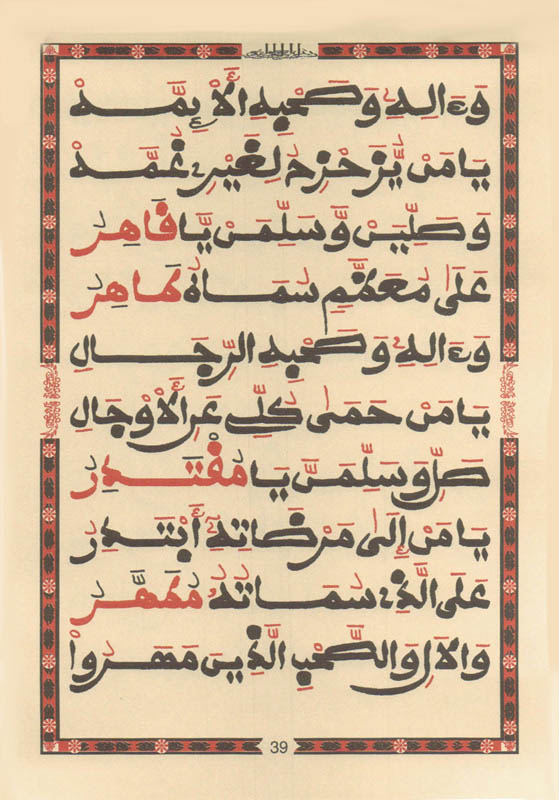 وَءَالِهِ وَصَحْبِهِ الْأَئِمَّهْ
يَا مَنْ يُّزَحْزِحُ لِغَيْرِي غُمَّهْ
وَصَلِّيَنْ وَّسَلِّمَنْ يَّا قَاهِرُ
عَلَى مُعَظَّمٍ سَمَاهُ طَاهِرُ
وَءَالِهِ وَصَحْبِهِ الرِّجَالِ
يَا مَنْ حَمَى كُلِّي عَنِ الْأَوْجَالِ
صَلِّ وَسَلِّمَنَّ يَا مُقْتَدِرُ
يَا مَنْ إِلَى مَرْضَاتِهِ أَبْتَدِرُ
عَلَى الَّذِي سَمَاتُهُ مُطَهَّرُ
وَالْآلِ وَالصَّحْبِ الَّذِينَ مَهَرُوا
39